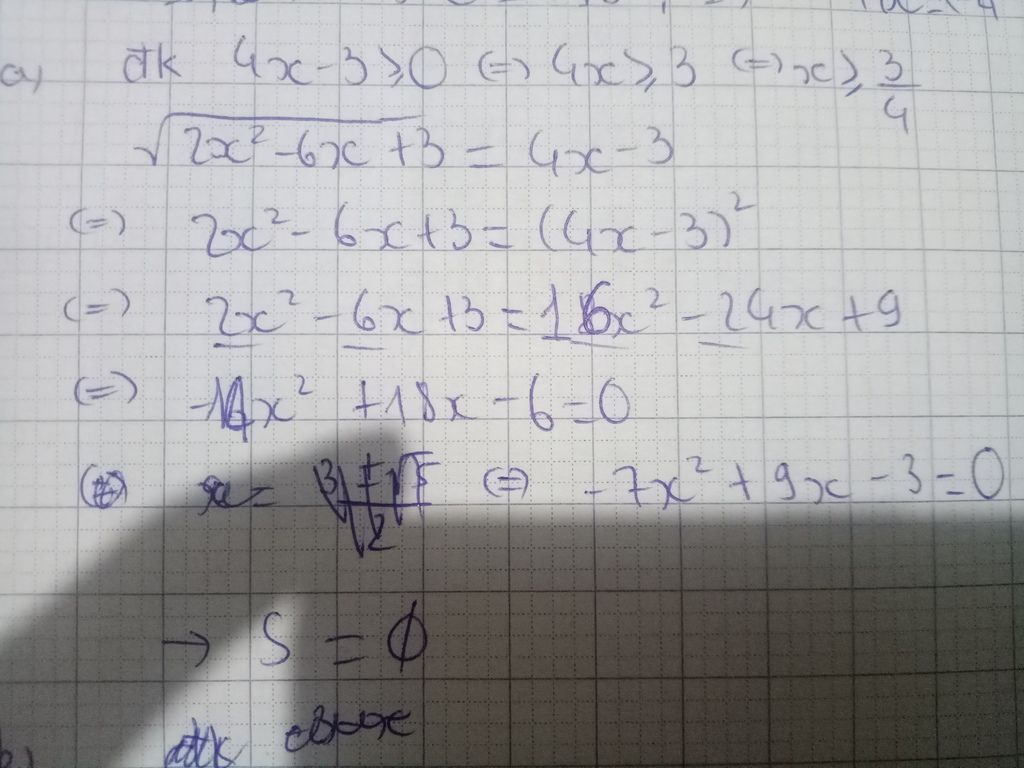 a) đk 4x-3≥0 (=) 4x≥3 (=) x≥3/4
√(2x²-6x+3) = 4x-3
(=) 2x²-6x+3=(4x-3)²
(=) 2x²-6x+3=16x²-24x+9
(=) -14x²+18x-6=0
(=) -7x²+9x-3=0
→ S=∅
b) đk